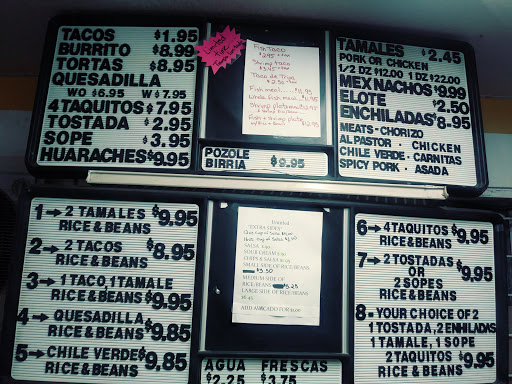 TACOS $1.95
BURRITO $8.99
TORTAS $8.95
QUESADILLA
WO $6.95 W $7.95
4 TAQUITOS $7.95
TOSTADA $2.95
SOPE $3.95
HUARACHES $9.95
Limited
time
Fish Taco
Shrimp taco
Taco de Tripa
Fish meal
Whole fish meal
Shrimp plate
Fish & Shrimp plate
POZOLE
BIRRIA $9.95
TAMALES $2.45
PORK OR CHICKEN
1/2 DZ $12.00 1 DZ $22.00
MEX NACHOS $9.99
ELOTE $2.50
ENCHILADAS $8.95
MEATS - CHORIZO
ALPASTOR - CHICKEN
CHILE VERDE - CARNITAS
SPICY PORK - ASADA
1→ 2 TAMALES $9.95
RICE & BEANS
2→ 2 TACOS $8.95
RICE & BEANS
3→ 1 TACO, 1 TAMALE
RICE & BEANS $9.95
4→ QUESADILLA
RICE & BEANS $9.85
5→ CHILE VERDE $9.85
RICE & BEANS
EXTRA SIDES
SALSA
SOUR CREAM
CHIPS & SALSA
SMALL SIDE OF RICE/BEANS
$3.50
MEDIUM SIDE OF
RICE/BEANS $5.25
LARGE SIDE OF RICE/BEANS
ADD AVOCADO FOR
AGUA FRESCAS
$2.25 $3.75
6→ 4 TAQUITOS $9.95
RICE & BEANS
7→ 2 TOSTADAS $9.95
OR
2 SOPES
RICE & BEANS
8 - YOUR CHOICE OF 2
1 TOSTADA, 2 ENHILADAS
1 TAMALE, 1 SOPE
2 TAQUITOS $9.95
RICE & BEANS